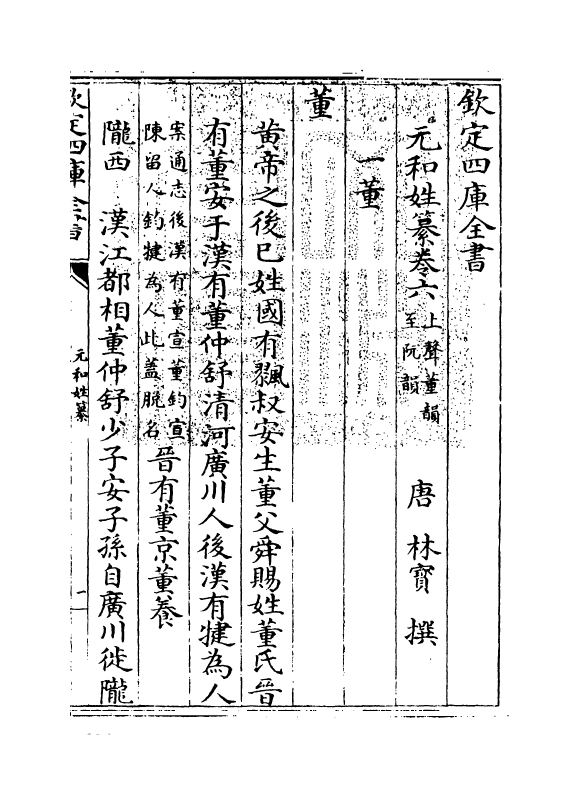 欽定四庫全書
元和姓纂卷六 上聲董韻至阮韻 唐 林寶 撰
一董
董
黃帝之後巳姓國有飂叔安生董父舜賜姓董氏晉
有董安于漢有董仲舒清河廣川人後漢有犍為人
案通志後漢有董宣董鈞宣
陳留人鈞犍為人此蓋脫名
晉有董京董養
隴西 漢江都相董仲舒少子安子孫自廣川徙隴
欽定四庫全書
元和姓纂
一